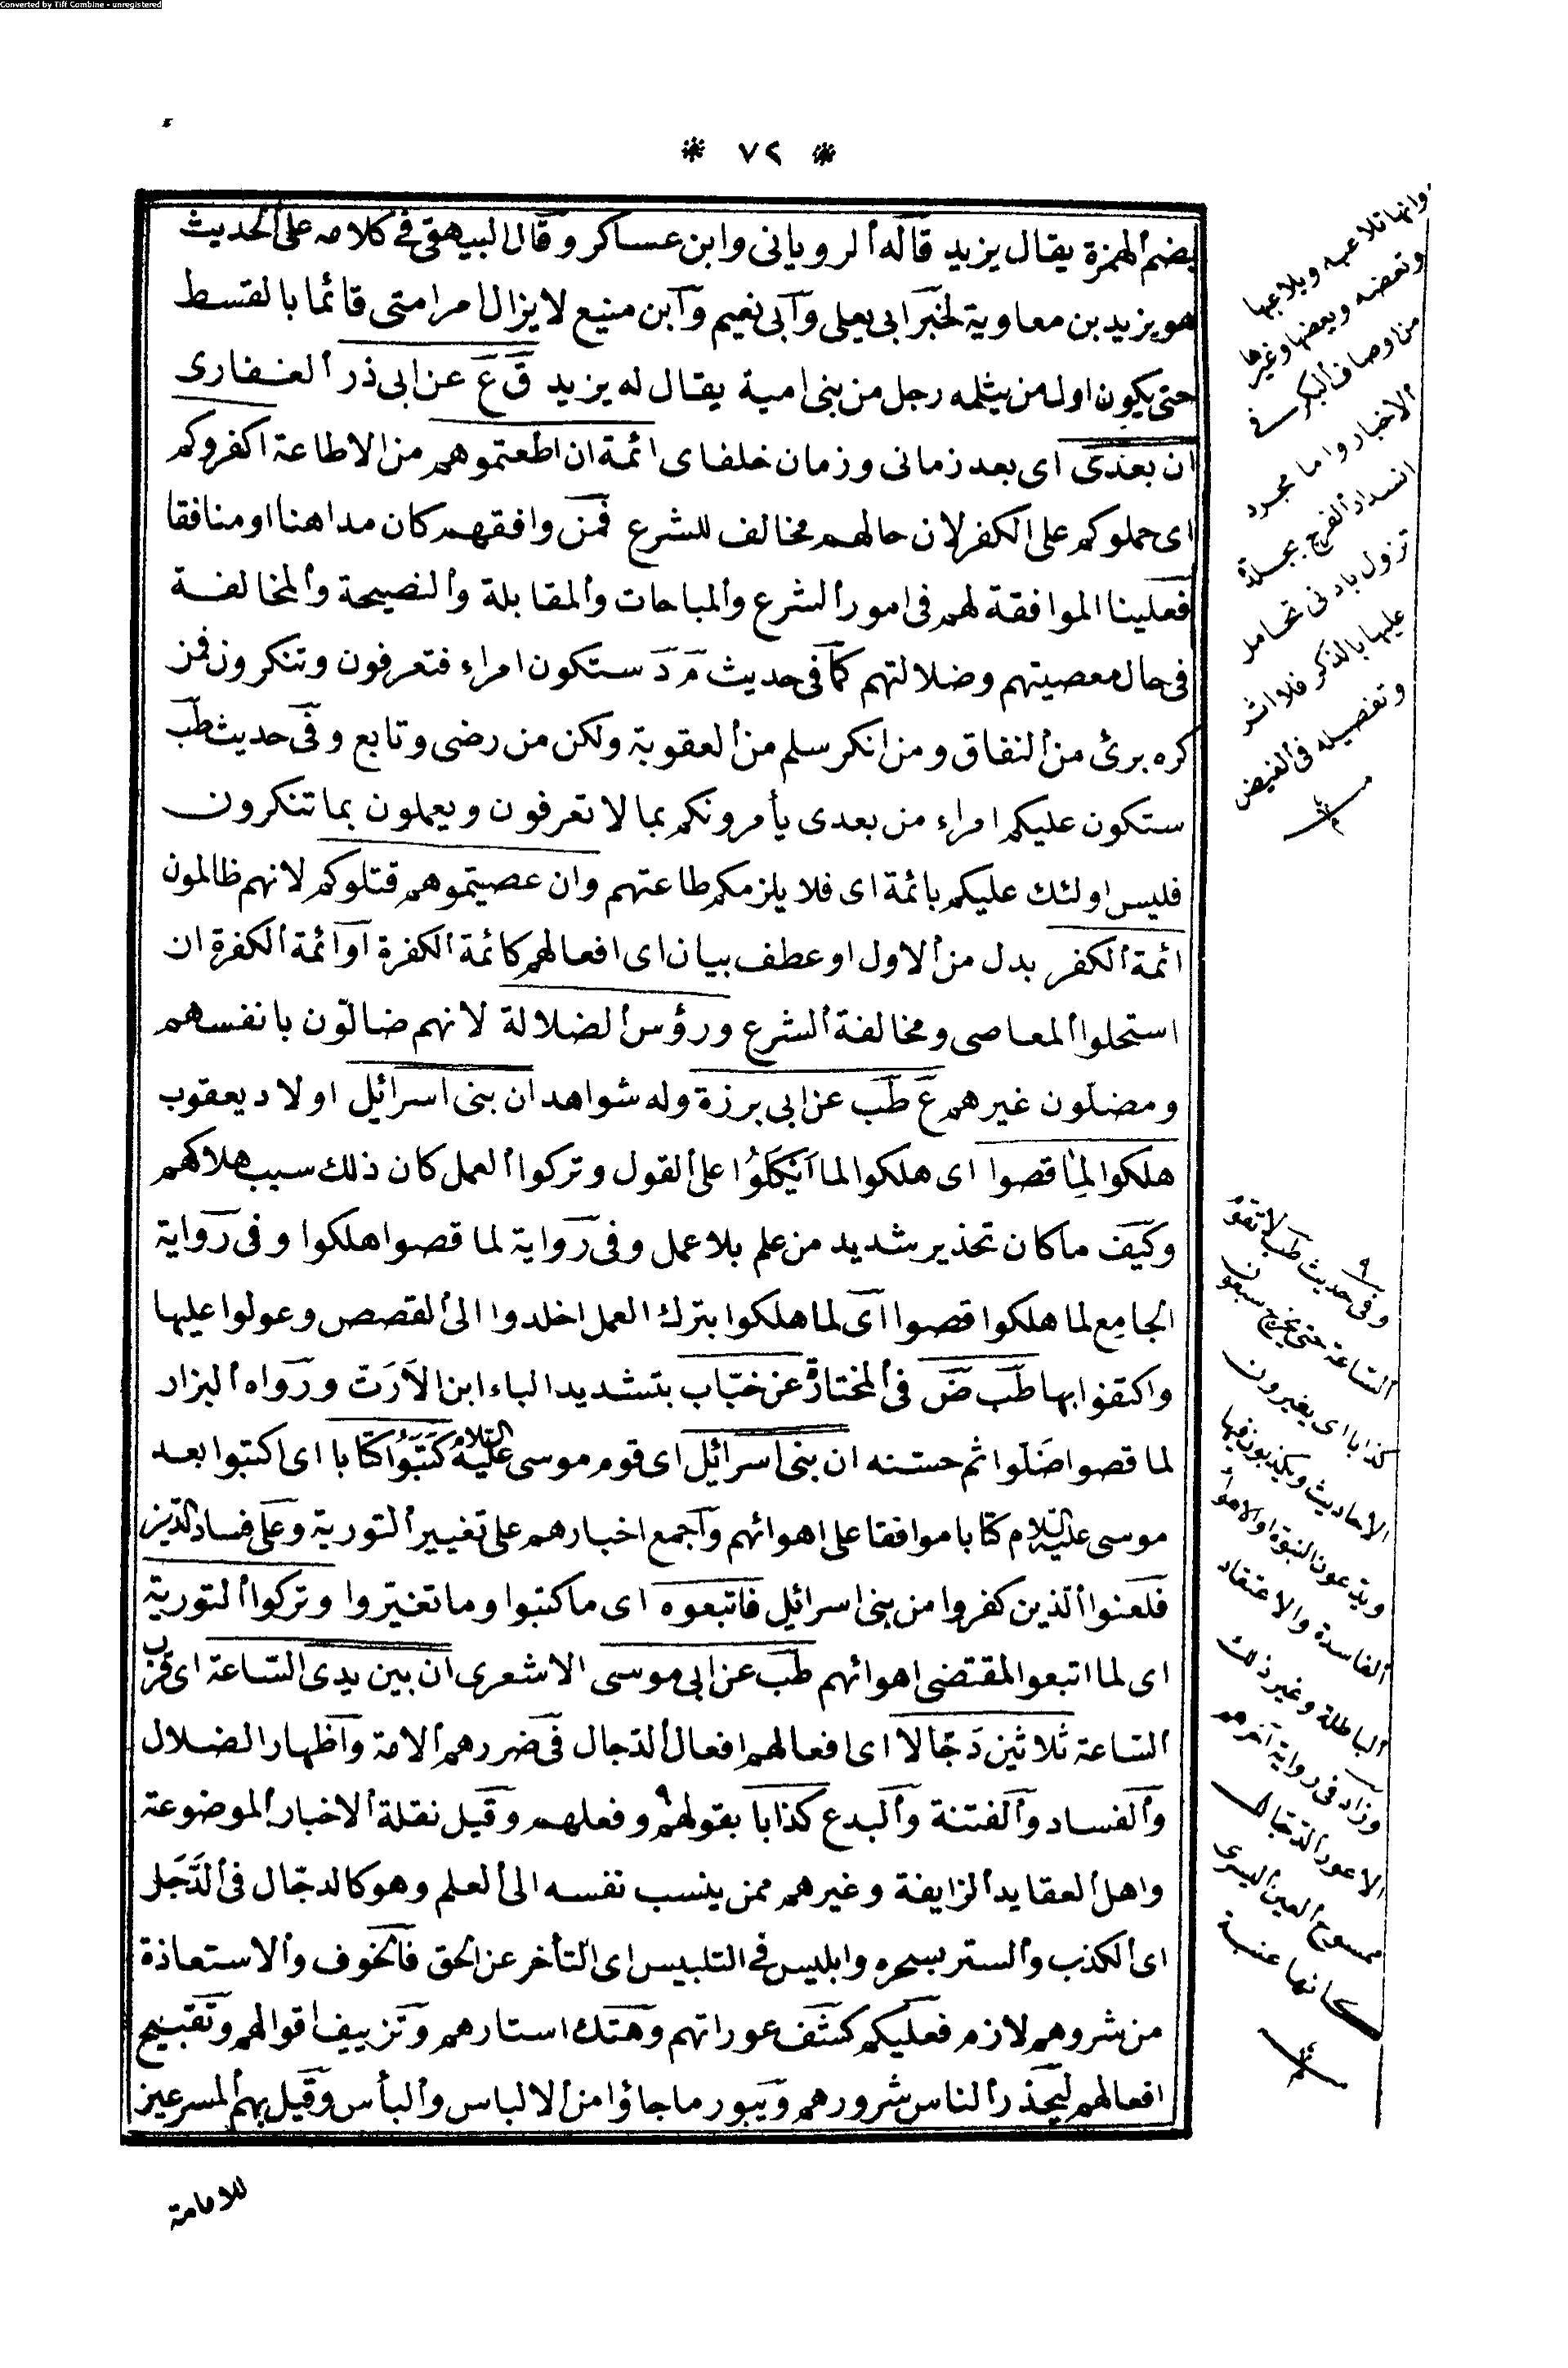 Converted by Tiff Combine - unregistered
* ٧٢ *
بضم الهمزة يقال يزيد قاله الرويانى وابن عساكر وقال البيهقى فى كلامه على الحديث
هو يزيد بن معاوية لخبر ابى يعلى وآبى نعيم وآبن منيع لا يزال امر امتى قائما بالقسط
حتى يكون اول من يثلمه رجل من بنى امية يقال له يزيد قَ عَ عن ابى ذر الغفارى
ان بعدى اى بعد زمانى وزمان خلفاى ائمة ان اطعتموهم من الاطاعة اكفروكم
اى حملوكم على الكفر لان حالهم مخالف للشرع فمن وافقهم كان مداهنا او منافقا
فعلينا الموافقة لهم فى امور الشرع والمباحات والمقابلة والنصيحة والمخالفة
فى حال معصيتهم وضلالتهم كما فى حديث مَ دَ ستكون امراء فتعرفون وتنكرون فمن
كره برئ من النفاق ومن انكر سلم من العقوبة ولكن من رضى وتابع وفى حديث طب
ستكون عليكم امراء من بعدى يأمرونكم بما لا تعرفون ويعملون بما تنكرون
فليس اولئك عليكم بائمة اى فلا يلزمكم طاعتهم وان عصيتموهم قتلوكم لانهم ظالمون
ائمة الكفر بدل من الاول او عطف بيان اى افعالهم كائمة الكفرة آو ائمة الكفرة ان
استحلوا المعاصى ومخالفة الشرع ورؤس الضلالة لانهم ضالّون بانفسهم
ومضلون غيرهم عَ طَب عن ابى برزة وله شواهد ان بنى اسرائيل اولاد يعقوب
هلكوا لما قصوا اى هلكوا لما اتكلوا على القول وتركوا العمل كان ذلك سبب هلاكهم
وكيف ما كان تحذير شديد من علم بلا عمل وفى رواية لما قصوا هلكوا وفى رواية
الجامع لما هلكوا قصوا آى لما هلكوا بترك العمل اخلدوا الى القصص وعولوا عليها
واكتفوا بها طَب ضَ فى المختارة عن خبّاب بتشديد الباء ابن الاَرَت ورواه البزار
لما قصوا ضلوا ثم حسّنه ان بنى اسرائيل اى قوم موسى عليه السلام كَتَبُوا كتابا اى اكتبوا بعد
موسى عليه السلام كتابا موافقا على اهوائهم وآجمع اخبارهم على تغيير التورية وعلى فساد الدين
فلعنوا الذين كفروا من بنى اسرائيل فاتبعوه اى ما كتبوا وما تغيّروا وتركوا التورية
اى لما اتبعوا لمقتضى اهوائهم طَب عن ابى موسى الاشعرى ان بين يدى السّاعة اى قرب
السّاعة ثلاثين دَجّالا اى افعالهم افعال الدّجال فى ضررهم الامة وآظهار الضلال
والفساد والفتنة والبدع كذابا بقولهم ٩ وفعلهم وقيل نقلة الاخبار الموضوعة
واهل العقايد الزايفة وغيرهم ممن ينسب نفسه الى العلم وهو كالدجّال فى الدَّجَل
اى الكذب والستر بسحره وابليس فى التلبيس اى التأخر عن الحق فالخوف والاستعاذة
من شرورهم لازم فعليكم كشف عوراتهم وهتك استارهم وتزييف اقوالهم وتقبيح
افعالهم ليحذر الناس شرورهم ويبور ما جاؤا من الالباس والبأس وقيل بهم المسرعين
للامامة
وانها تلاعبه ويلاعبها
وتعضه ويعضها وغيرها
من اوصاف البكر فى
الاخبار واما مجرد
انسداد الفرج بجلدة
تزول بادنى تحامل
عليها بالذكر فلا اثر
وتفصيله فى الفيض
٩
وفى حديث طب لا تقوم
الساعة حتى يخرج سبعون
كذابا اى يغيرون
الاحاديث ويكذبون فيها
ويدعون النبوة او الاهواء
الفاسدة والاعتقاد
الباطلة وغير ذلك
وزاد فى رواية آخرهم
الاعور الدجال
ممسوح العين اليسرى
كانها عنبة